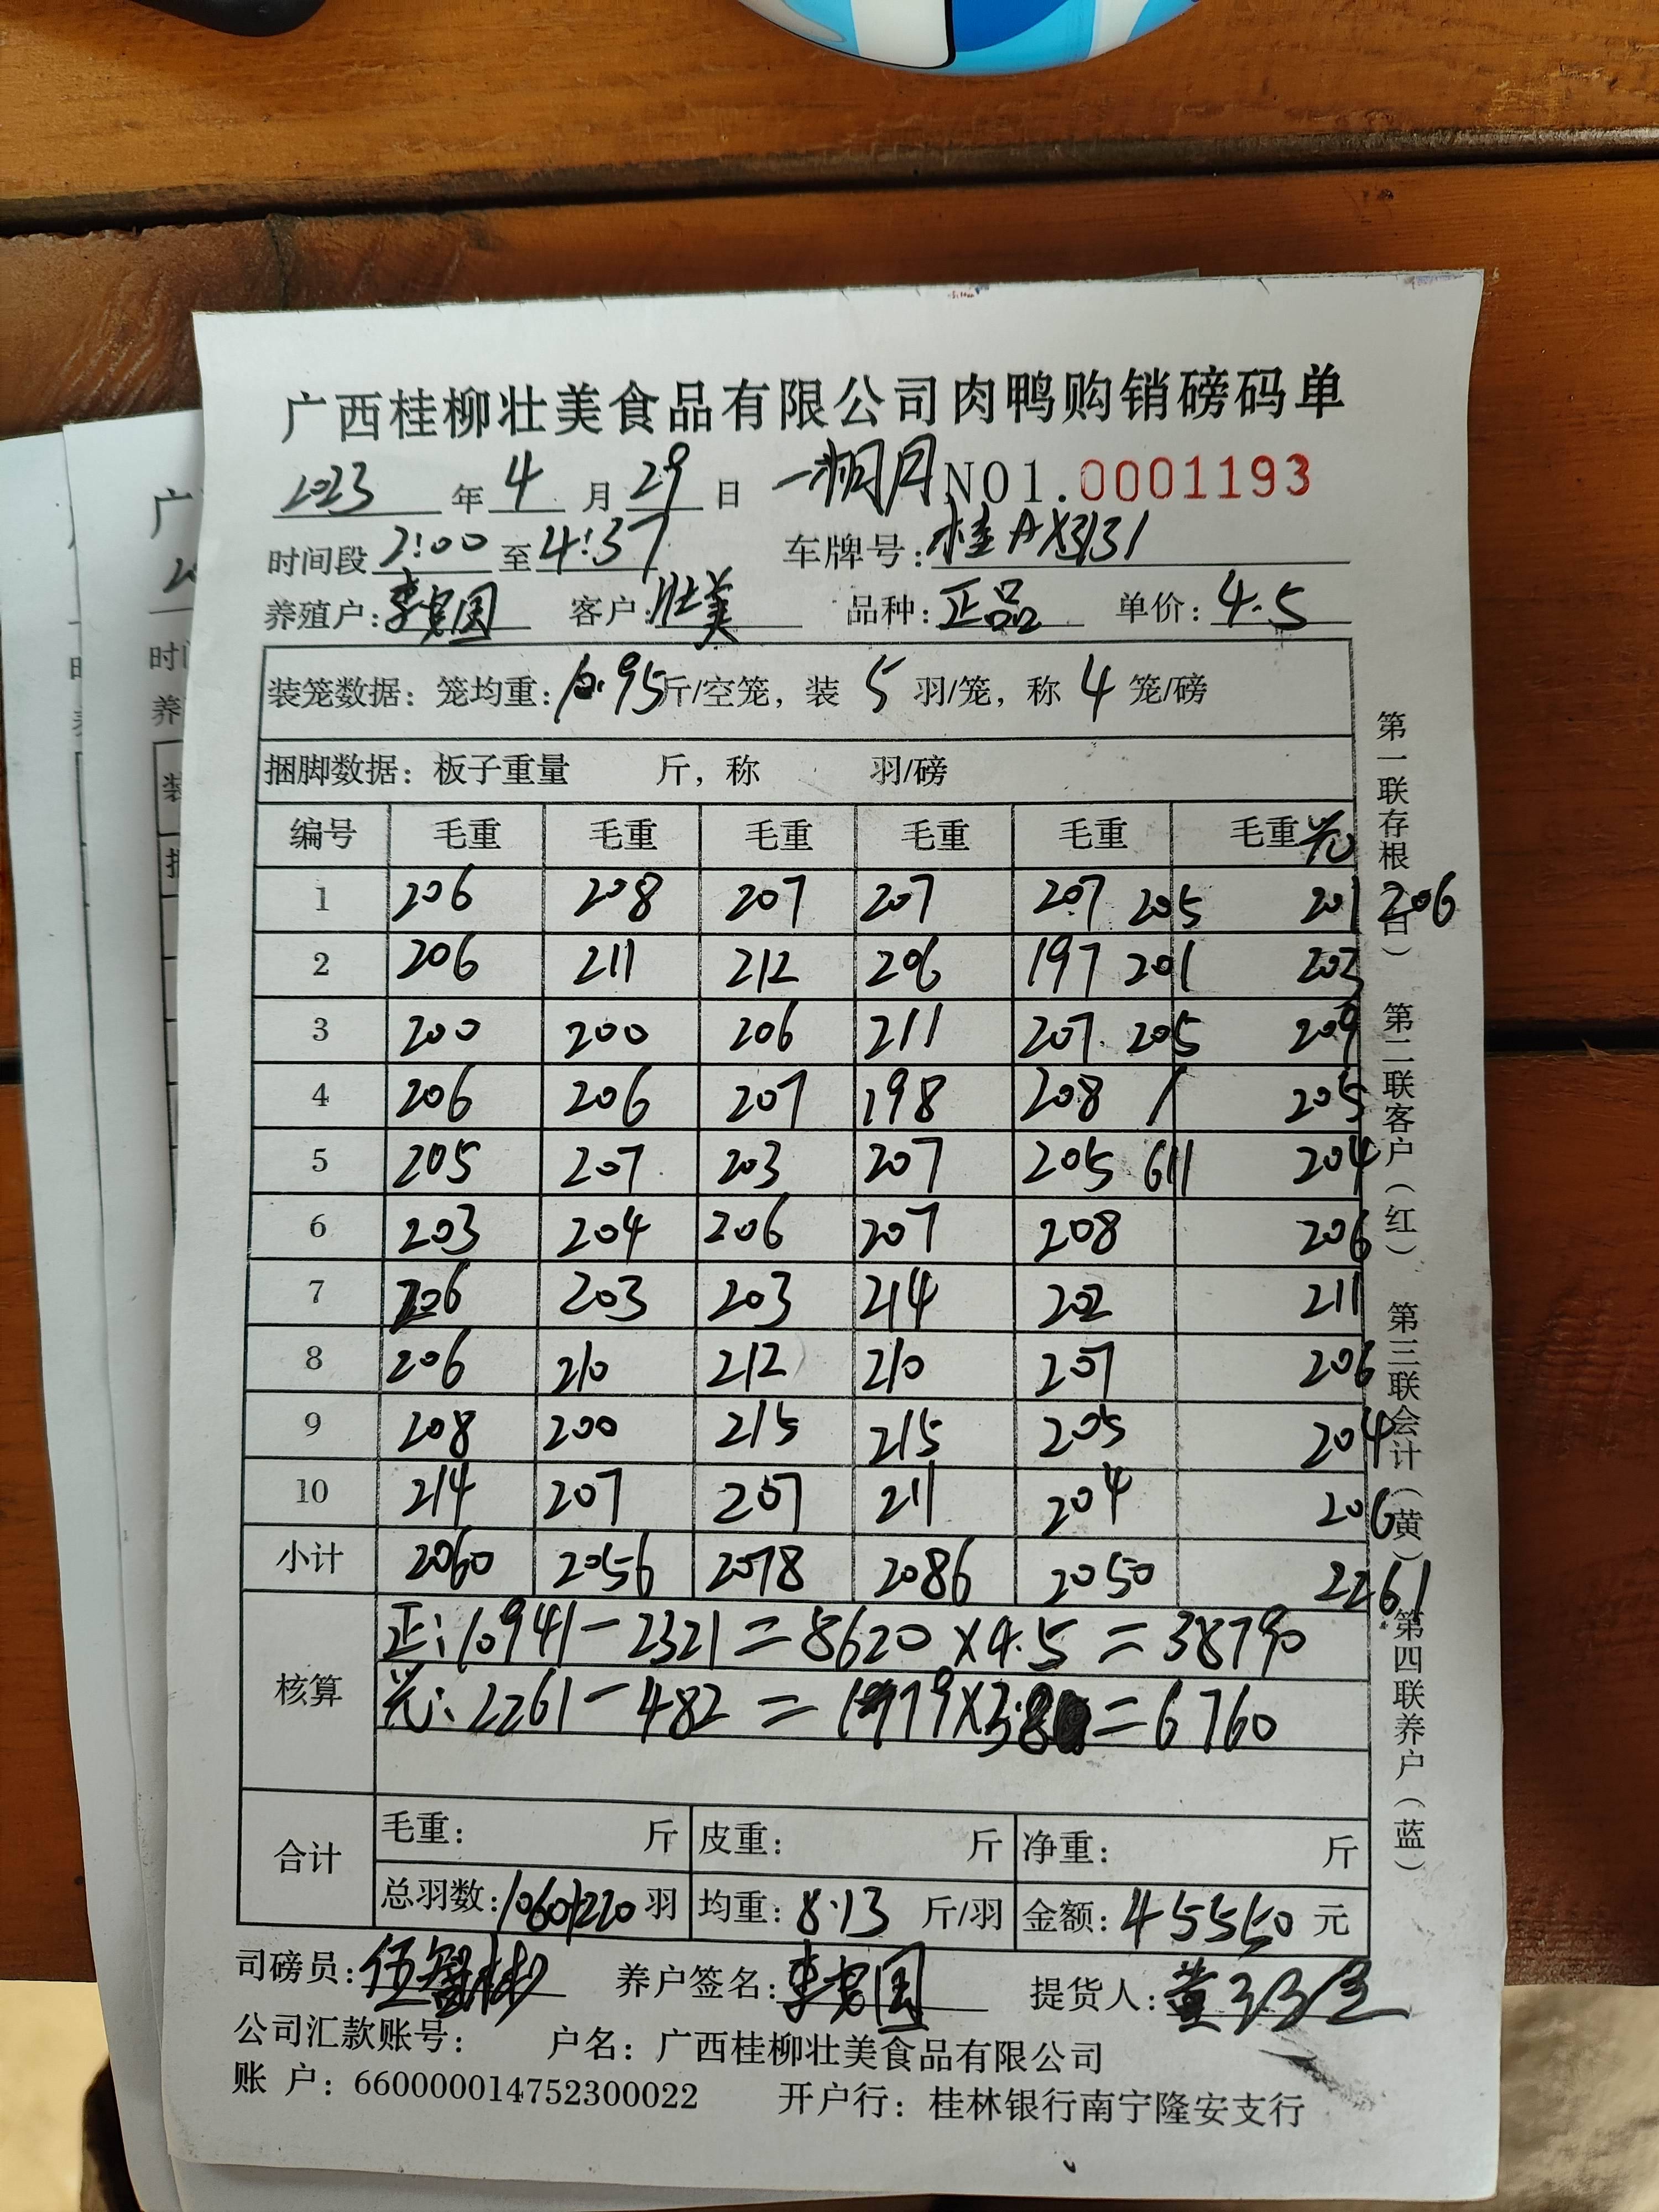 广西桂柳壮美食品有限公司肉鸭购销磅码单
2023 年 4 月 29 日 NO1.0001193
时间段 2:00 至 4:37 车牌号: 桂AX3131
养殖户: 李 国 客户: 壮美 品种: 正品 单价: 4.5
装笼数据: 笼均重: 10.95 斤/空笼, 装 5 羽/笼, 称 4 笼/磅
捆脚数据: 板子重量 斤, 称 羽/磅
编号 毛重 毛重 毛重 毛重 毛重 毛重
1 206 208 207 207 207 205 201 206
2 206 211 212 206 197 201 203
3 200 200 206 211 207 205 209
4 206 206 207 198 208 / 205
5 205 207 203 207 205 611 204
6 203 204 206 207 208 206
7 206 203 203 214 202 211
8 206 210 212 210 207 206
9 208 200 215 215 205 204
10 214 207 207 211 204 206
小计 2060 2056 2078 2086 2050 2261
核算 正: 10941-2321=8620×4.5=38790
2261-482=1779×3.8=6760
合计 毛重: 斤 皮重: 斤 净重: 斤
总羽数: 1060/220 羽 均重: 8.13 斤/羽 金额: 45550 元
司磅员: 伍 彬 养户签名: 李 国 提货人: 黄
公司汇款账号: 户名: 广西桂柳壮美食品有限公司
账 户: 660000014752300022 开户行: 桂林银行南宁隆安支行
第一联存根(白) 第二联客户(红) 第三联会计(黄) 第四联养户(蓝)